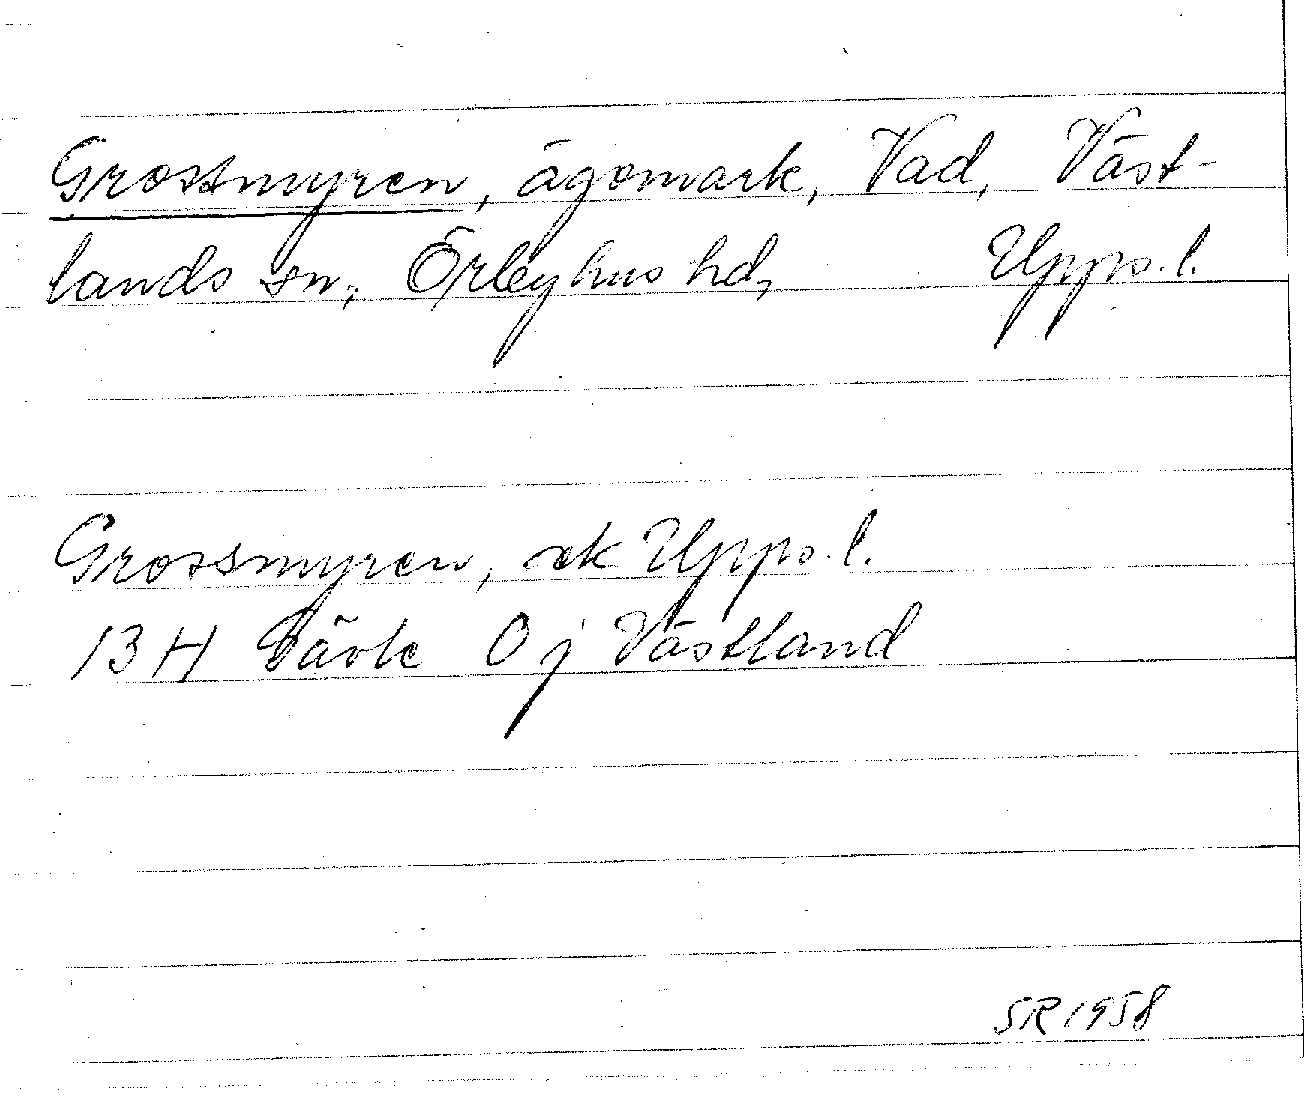 Grossmyren, ägomark, Vad, Väst-
lands sn, Örbyhus hd, Upps. l.
Grossmyren, ek Upps. l.
13 H Gävle 0 j Västland
SR 1958